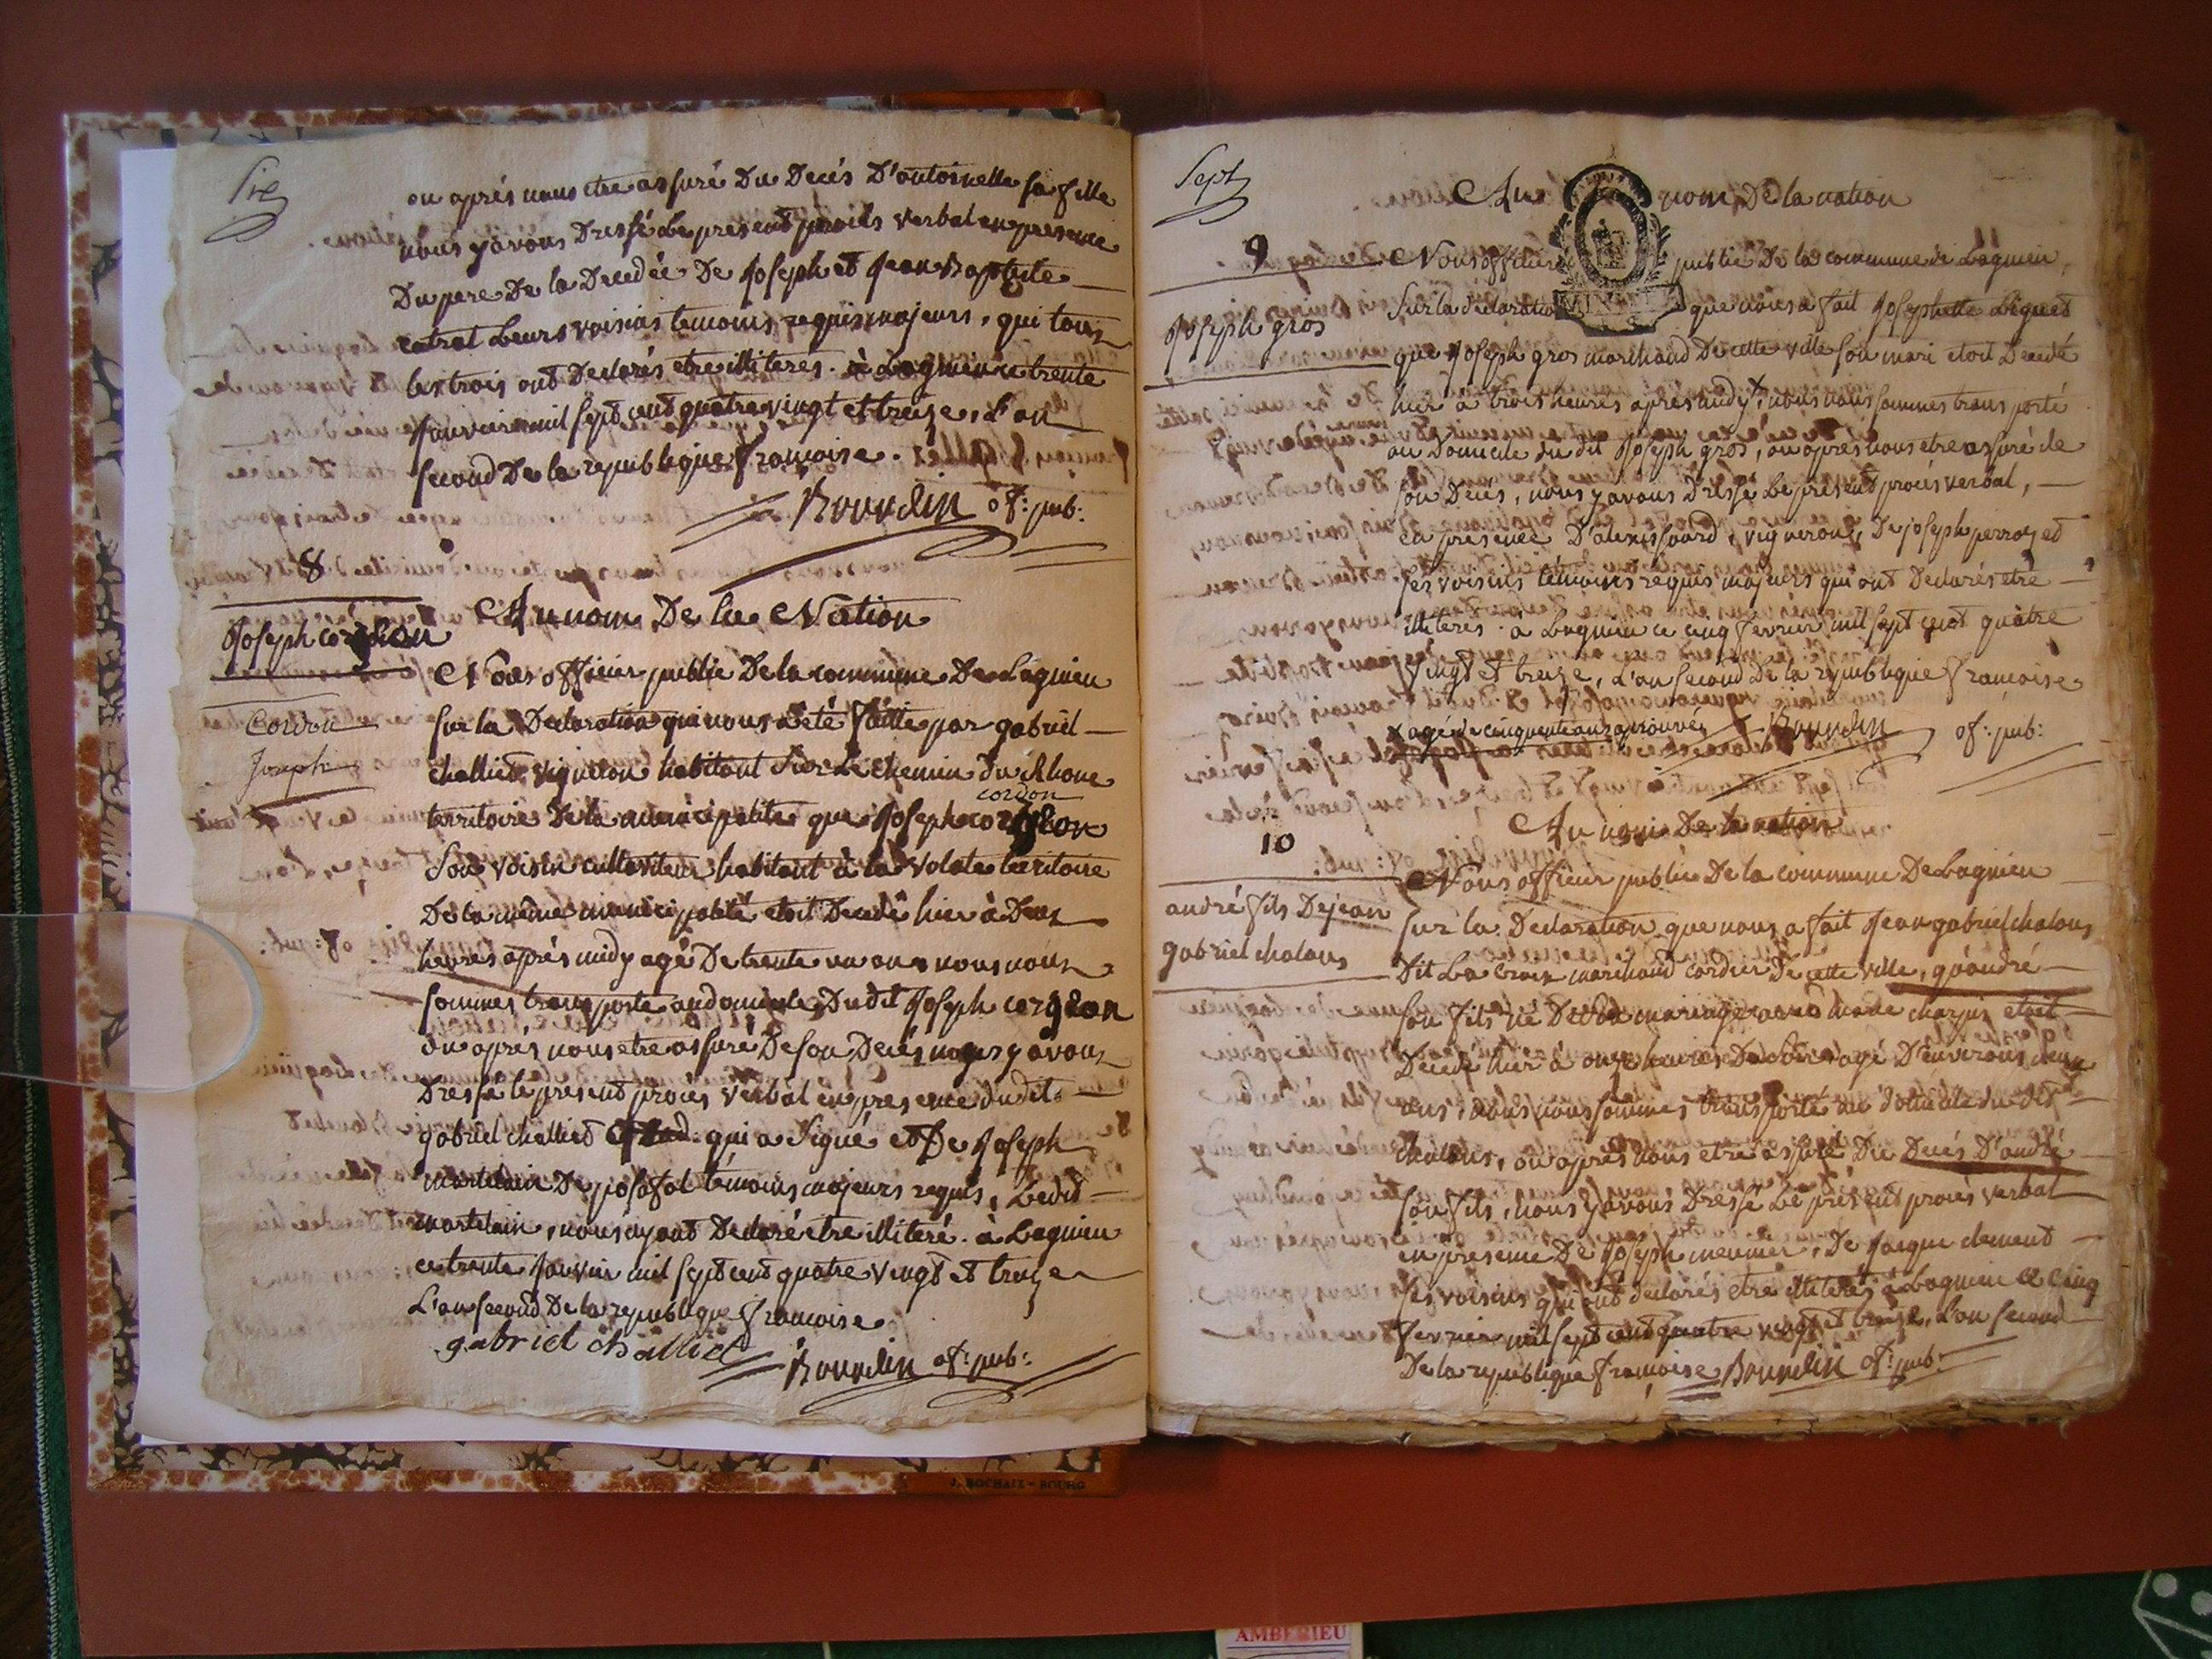 Six
ou après nous etre assuré Du Decés D'antoinette sa fille
nous y avons Dressé Le present procés verbal en presence
Du pere De la Decedée De Joseph et Jean Baptiste
catrat Leurs voisins temoins requis majeurs, qui tous
les trois ont Declarés etre illiterés. à Lagnieu ce trente
Janvier mil sept cent quatre vingt et treize, L'an
second De la republique francoise.
Bourdin of: pub:
8
Au nom De la Nation
Joseph corgeon
Nous officier public De la commune De Lagnieu
Cordon
Joseph
sur la Declaration qui nous a été faitte par gabriel
challiet vigneron habitant Sur Le chemin du Rhone
cordon
territoire De la municipalité que Joseph corgeon
Son voisin cultivateur habitant à la volate territoire
De la même municipalité etoit Decedé hier à Deux
heures aprés midy agé De trente un ans nous nous
sommes transporté au domicile Du dit Joseph corgeon
ou aprés nous etre assuré De son Decés nous y avons
Dressé le present procés verbal en presence du dit
gabriel challiet qui a signé et De Joseph
martelain De posafol témoins majeurs requis, Le dit
martelain, nous ayant Declaré etre illiteré. à Lagnieu
ce trente Janvier mil sept cent quatre vingt et treize
L'an second De la republique francoise
gabriel challiet
Bourdin of: pub:
Sept
Au nom De la nation
9
Nous officier public De la commune de Lagnieu,
Joseph gros
Sur la declaration que nous a fait Josephette Liguet
que Joseph gros marchand De cette ville son mari etoit Decedé
hier à trois heures aprés midy, x nous nous sommes transporté
au Domicile du dit Joseph gros, ou aprés nous etre assuré de
son Decés, nous y avons Dressé Le present procés verbal,
en presence D'alexis sourd, vigneron, De joseph perroz et
ses voisins témoins requis majeurs qui ont Declarés etre
illiterés. à Lagnieu ce cinq fevrier mil sept cent quatre
vingt et treize, L'an second De la republique francoise
x agé de cinquante ans aprouvé, Bourdin of: pub:
10
Au nom De la nation
Nous officier public De la commune De Lagnieu
andré fils De jean
gabriel chalons
sur la Declaration que nous a fait Jean gabriel chalons
Dit La Croix marchand cordier De cette ville, qu'andré
son fils né De son mariage avec etoit
Decedé hier à onze heures Du Soir agé D'environs deux
ans, nous nous sommes transporté au domicile du dit
chalons, ou aprés nous etre assuré Du Decés D'andré
son fils, nous y avons Dressé Le present procés verbal
en presence De Joseph meunier, De Jacque clement
ses voisins qui ont declarés etre illiterés à Lagnieu ce cinq
fevrier mil sept cent quatre vingt et treize, L'an second
De la republique francoise Bourdin of: pub:
J. ROCHAIX - BOURG
AMBERIEU